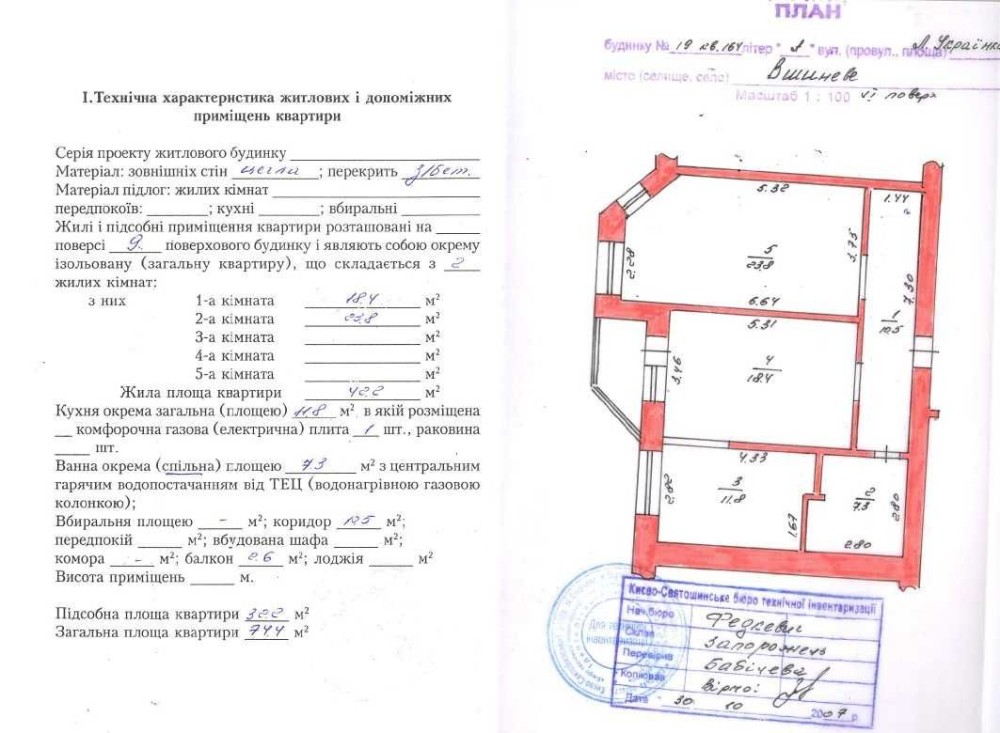 І.Технічна характеристика житлових і допоміжних
приміщень квартири
Серія проекту житлового будинку
Матеріал: зовнішніх стін цегла ; перекрить з/бет.
Матеріал підлог: жилих кімнат
передпокоїв: ; кухні ; вбиральні
Жилі і підсобні приміщення квартири розташовані на
поверсі 9 поверхового будинку і являють собою окрему
ізольовану (загальну квартиру), що складається з 2
жилих кімнат:
з них 1-а кімната 18.4 м²
2-а кімната 23.8 м²
3-а кімната м²
4-а кімната м²
5-а кімната м²
Жила площа квартири 42.2 м²
Кухня окрема загальна (площею) 11.8 м² в якій розміщена
__ комфорочна газова (електрична) плита 1 шт., раковина
____ шт.
Ванна окрема (спільна) площею 7.3 м² з центральним
гарячим водопостачанням від ТЕЦ (водонагрівною газовою
колонкою);
Вбиральня площею - м²; коридор 10.5 м²;
передпокій м²; вбудована шафа м²;
комора - м²; балкон 2.6 м²; лоджія м²
Висота приміщень м.
Підсобна площа квартири 32.2 м²
Загальна площа квартири 74.4 м²
ПЛАН
будинку № 19 кв.164 літер "А" вул. (провул., площа) Л.Українки
місто (селище, село) Вишневе
Масштаб 1 : 100 VI поверх
5.32
1.44
3.75
2.28
5
23.8
7.30
6.64
1
10.5
5.31
3.46
4
18.4
4.33
2.82
3
11.8
1.67
2
7.3
2.80
2.80
Києво-Святошинське бюро технічної інвентаризації
Нач.бюро Федкевич
Склав Запорожець
Перевірив Бабічева
Копіював Вірно:
Дата 30 10 2007 р